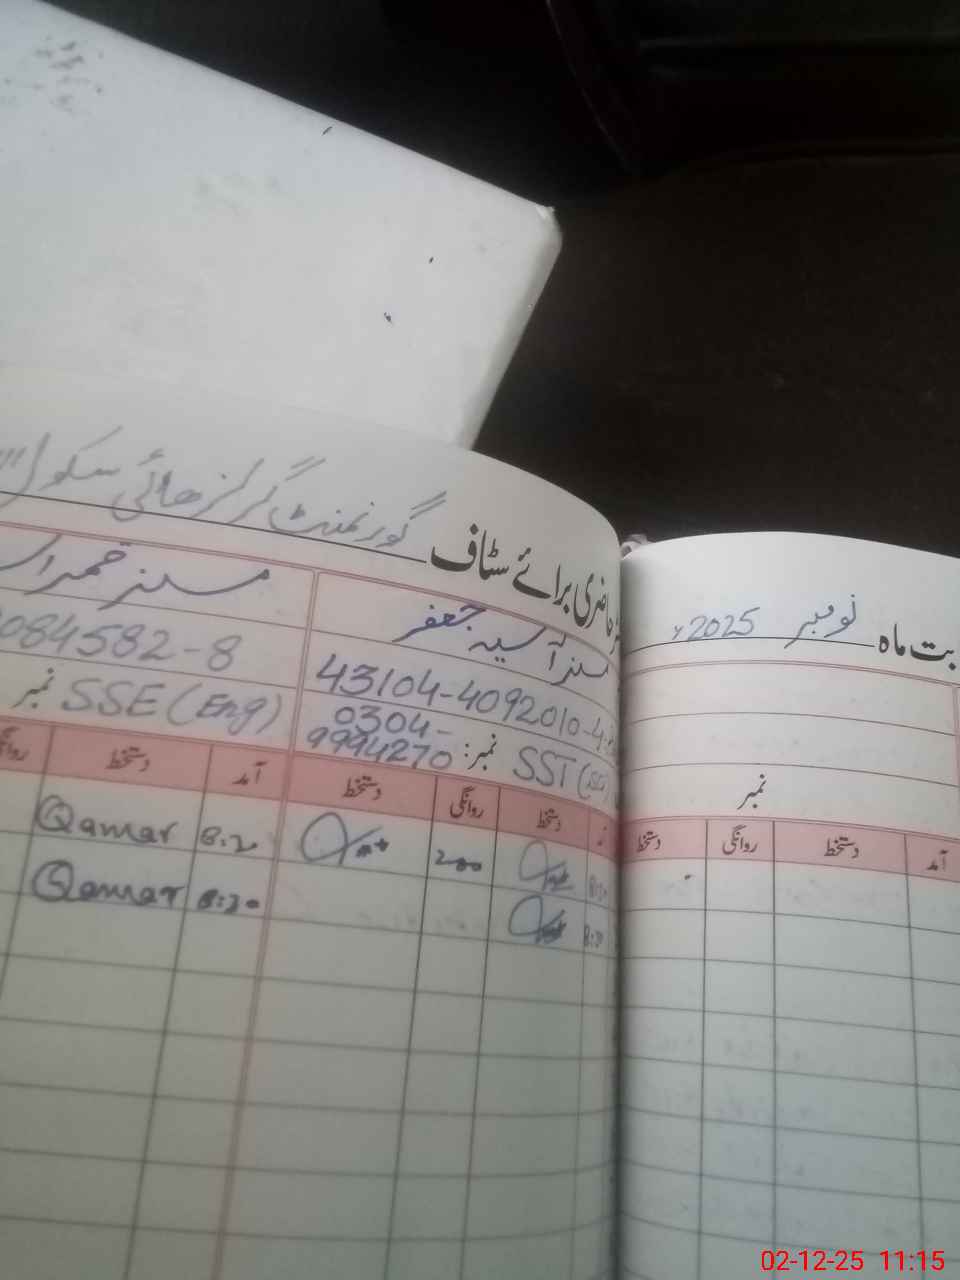 حاضری برائے سٹاف گورنمنٹ گرلز ھائی سکول
بت ماہ نومبر 2025ء
مسز آسیہ جعفر
مسز قمر
43104-4092010-4
084582-8
SST (SC) نمبر: 0304-
9994270
SSE (Eng) نمبر
نمبر
آمد دستخط روانگی دستخط
دستخط روانگی دستخط
آمد دستخط روانگی
8:30 200
8:20 Qamar
8:30
8:20 Qamar
02-12-25 11:15